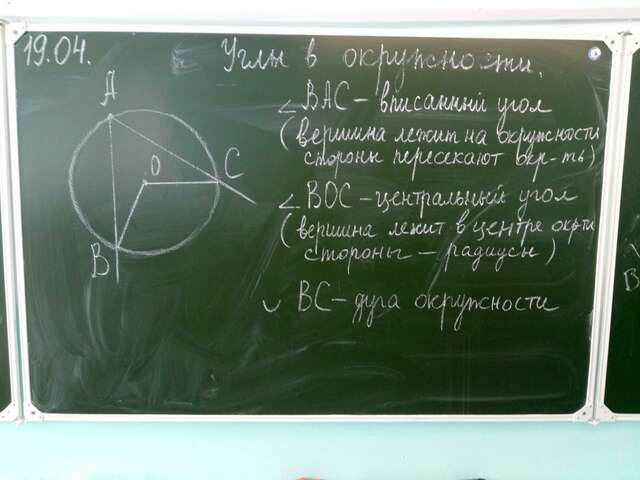 19.04.
Углы в окружности.
A
O
C
B
∠ BAC – вписанный угол
(вершина лежит на окружности
стороны пересекают окр-ть)
∠ BOC – центральный угол
(вершина лежит в центре окр-ти
стороны – радиусы)
◡ BC – дуга окружности
B